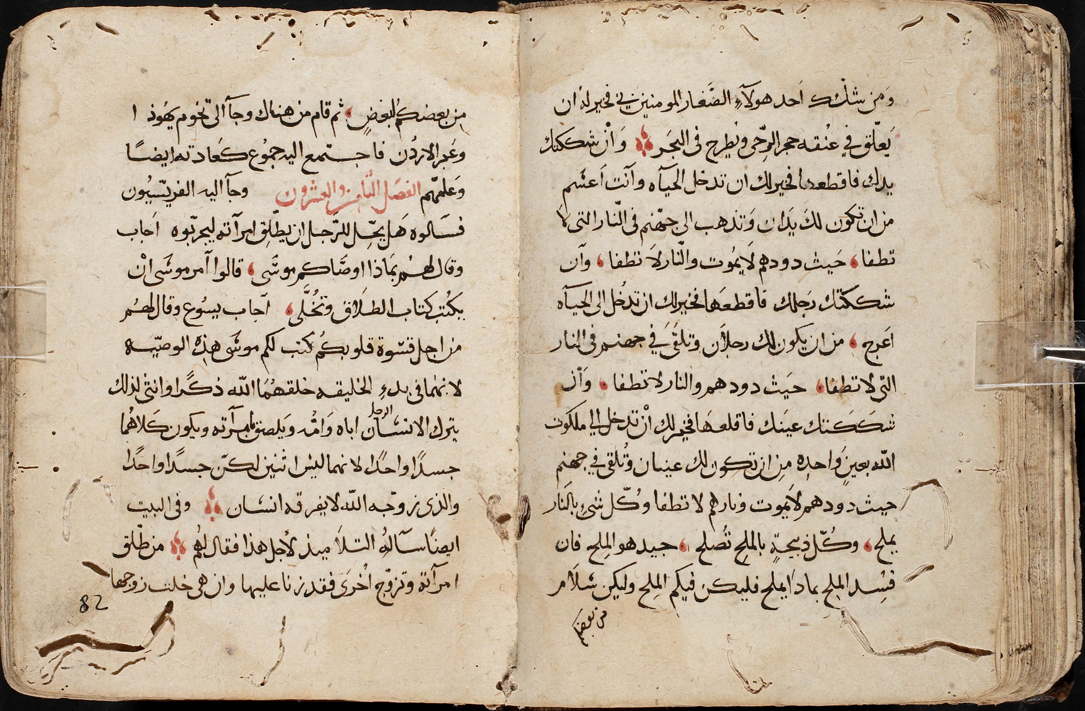 ومن شكك احد هولآء الصغار المومنين بي فخير له ان
يعلق في عنقه حجر الرحى ويطرح في البحر وان شككتك
يدك فاقطعها فخير لك ان تدخل الحيآه وآنت اعسم
من ان تكون لك يدان وتذهب الى جهنم في النار التي لا
تطفا حيث دودهم لا يموت والنار لا تطفا وان
شككتك رجلك فاقطعها فخير لك ان تدخل الى الحيآه
اعرج من ان يكون لك رجلان وتلقى في جهنم في النار
التي لا تطفا حيث دودهم والنار لا تطفا وآن
شككتك عينك فاقلعها فخير لك ان تدخل الى ملكوت
الله بعين واحده من ان تكون لك عينان وتلقى في جهنم
حيث دودهم لا يموت ونارهم لا تطفا وكل شي بالنار
يملح وكل ذبيحة بالملح تصلح جيد هو الملح فان
فسد الملح بماذا يملح فليكن فيكم الملح وليكن سلام
من بعضكم
من بعضكم لبعض ثم قام من هناك وجآ الى تخوم يهوذا
وعبر الاردن فاجتمع اليه جموع كعادته ايضا
وعلمهم الفصل الثامن والعشرون وجآ اليه الفريسيون
فسالوه هل يحل للرجل ان يطلق امرآته ليجربوه اجاب
وقال لهم بماذا اوصاكم موسى قالوا آمر موسى ان
يكتب كتاب الطلاق وتخلى اجاب يسوع وقال لهم
من اجل قسوة قلوبكم كتب لكم موسى هذه الوصيه
لانهما في بدء الخليقه خلقهما الله ذكرا وانثى لذلك
يترك الانسان الرجل اباه وامه ويلصق بامرآته ويكون كلاهما
جسدا واحدا لانهما ليس اثنين لكن جسدا واحدا
والذي زوجه الله لا يفرقه انسان وفي البيت
ايضا سآلوه التلاميذ لاجل هذا فقال لهم من طلق
امرآته وتزوج اخرى فقد زنا عليها وان هي خلت زوجها
82